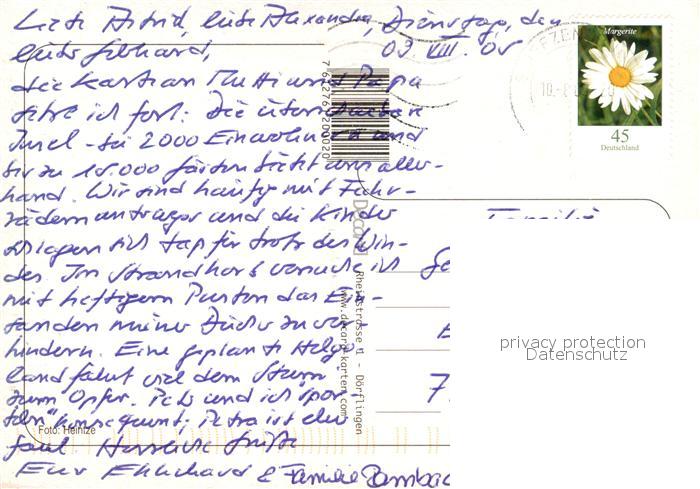 Liebe Astrid, liebe Alexandra, Dienstag, den
liebe Gebhard, 09. VIII. 05
die Karte an Mutti und Papa
setze ich fort. Die überschaubare
Insel - bei 2000 Einwohnern und
bis zu 10.000 Gästen sieht man aller-
hand. Wir sind häufig mit Fahr-
rädern unterwegs und die Kinder
schlagen sich tapfer trotz des Win-
des. Im Strandkorb versuche ich
mit heftigem Pusten das Ein-
sanden meiner Bücher zu ver-
hindern. Eine geplante Helgo-
landfahrt viel dem Sturm
zum Opfer. und ich "spor-
teln" konsequent. Petra ist eher
faul. Herzliche Grüße
Euer Ekkehard & Familie Bambac
Familie
7
Margerite
45
Deutschland
10.-8
7 62762 200020
Décard
Rheinstrasse 1 - Dörflingen
www.decard-karten.com
Foto: Heintze
privacy protection
Datenschutz